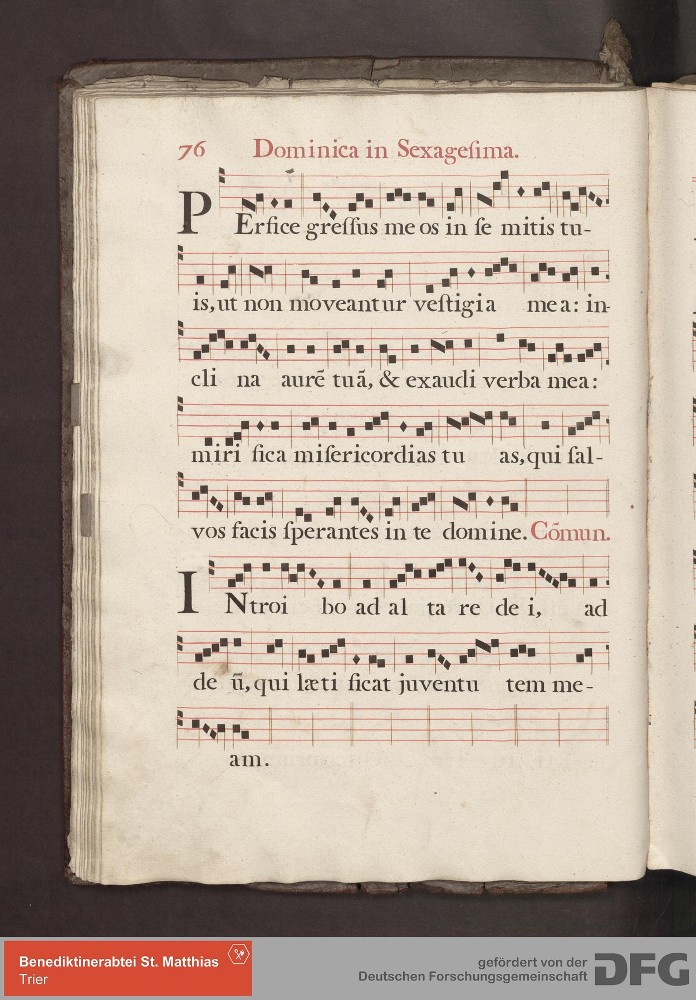 76 Dominica in Sexageſima.
PErfice greſſus me os in ſe mitis tu-
is, ut non moveantur veſtigia mea: in-
cli na aurē tuā, & exaudi verba mea:
miri fica miſericordias tu as, qui ſal-
vos facis ſperantes in te domine. Cōmun.
INtroi bo ad al ta re de i, ad
de ū, qui læti ficat juventu tem me-
am.
Benediktinerabtei St. Matthias
Trier
gefördert von der
Deutschen Forschungsgemeinschaft DFG